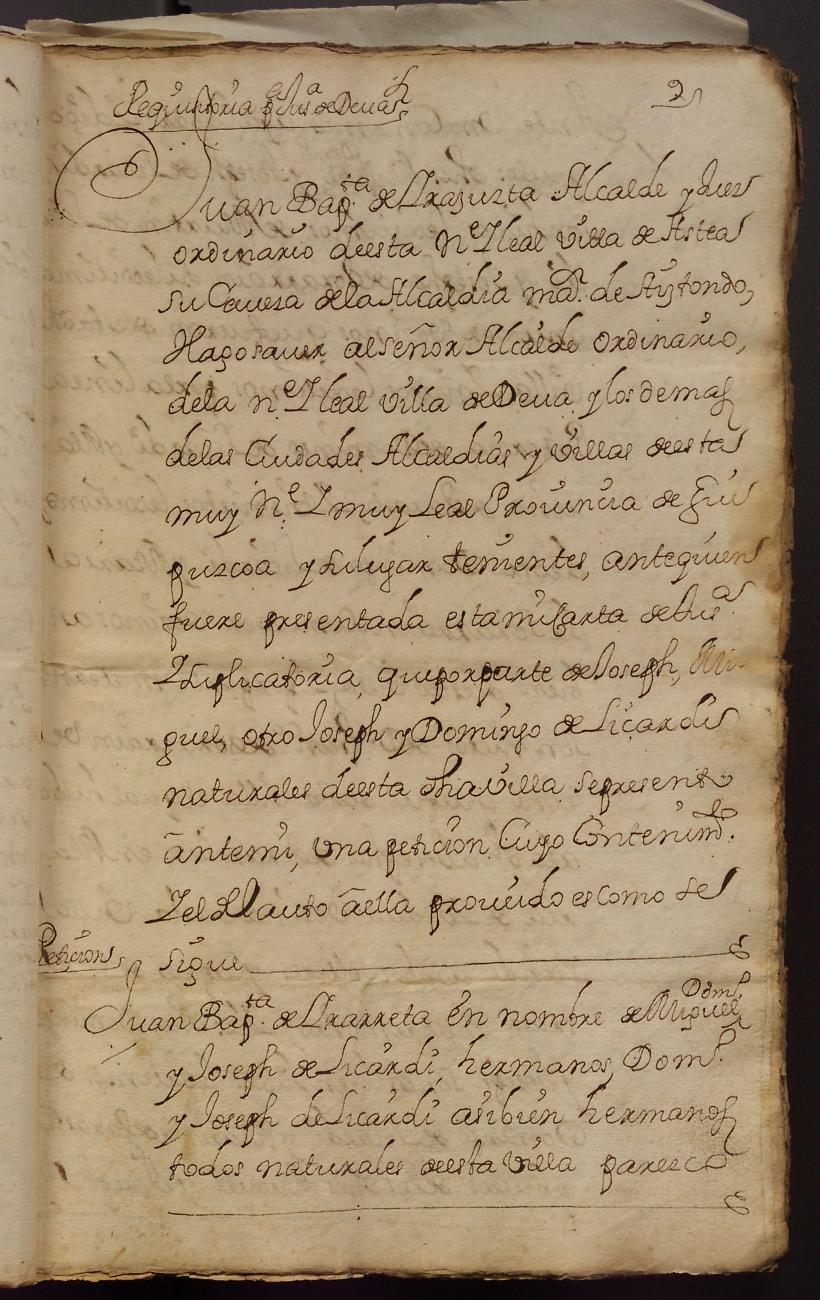 Requisitoria pª Jusª de Deva
2
Juan Bapta. de Lrazuzta Alcalde y Juez
ordinario deesta Ne. I leal villa de Asteas
su Caveza dela Alcaldia mar. de Aiztondo,
Hago saver al señor Alcalde ordinario,
dela ne. I leal villa de Deva y los demas
delas Ciudades Alcaldias y villas deesta
muy Ne. I muy Leal Provincia de Gui
puzcoa y sulugar tenientes, antequien
fuere presentada esta mi Carta de Jusa.
I suplicatoria, que por parte de Joseph, Mi-
guel, otro Joseph y Domingo de Licardi
naturales deesta dha villa se presento
ante mi, una peticion Cuyo Contenimto.
I el del auto aella proveido es como se
Peticion
sigue
Juan Bapta. de Lrarreta en nombre de Miguel Domo.
y Joseph de Licardi, hermanos, Domo.
y Joseph de Licardi asibien hermanos
todos naturales deesta villa parezco